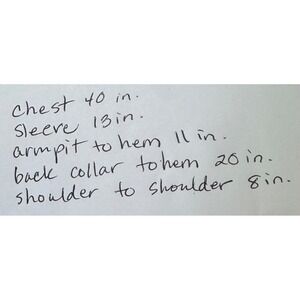 chest 40 in.
sleeve 13 in.
armpit to hem 11 in.
back collar to hem 20 in.
shoulder to shoulder 8 in.